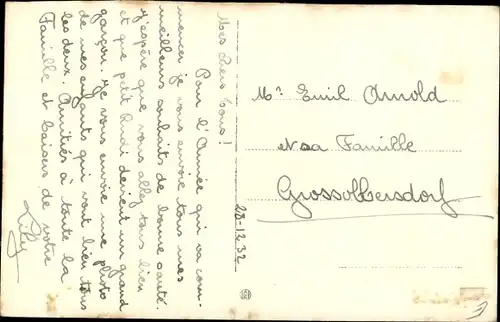 Mes Chers tous!
Pour l'Année qui va com-
mencer je vous envoie tous mes
meilleurs souhaits de bonne santé.
J'espère que vous allez tous bien
et que petit Rudi devient un grand
garçon. Je vous envoie une photo
de mes enfants qui vont bien tous
les deux. Amitiés à toute la
Famille et baisers de votre
Lily
28-12-32
Mr Emil Arnold
et sa Famille
Grossolbersdorf